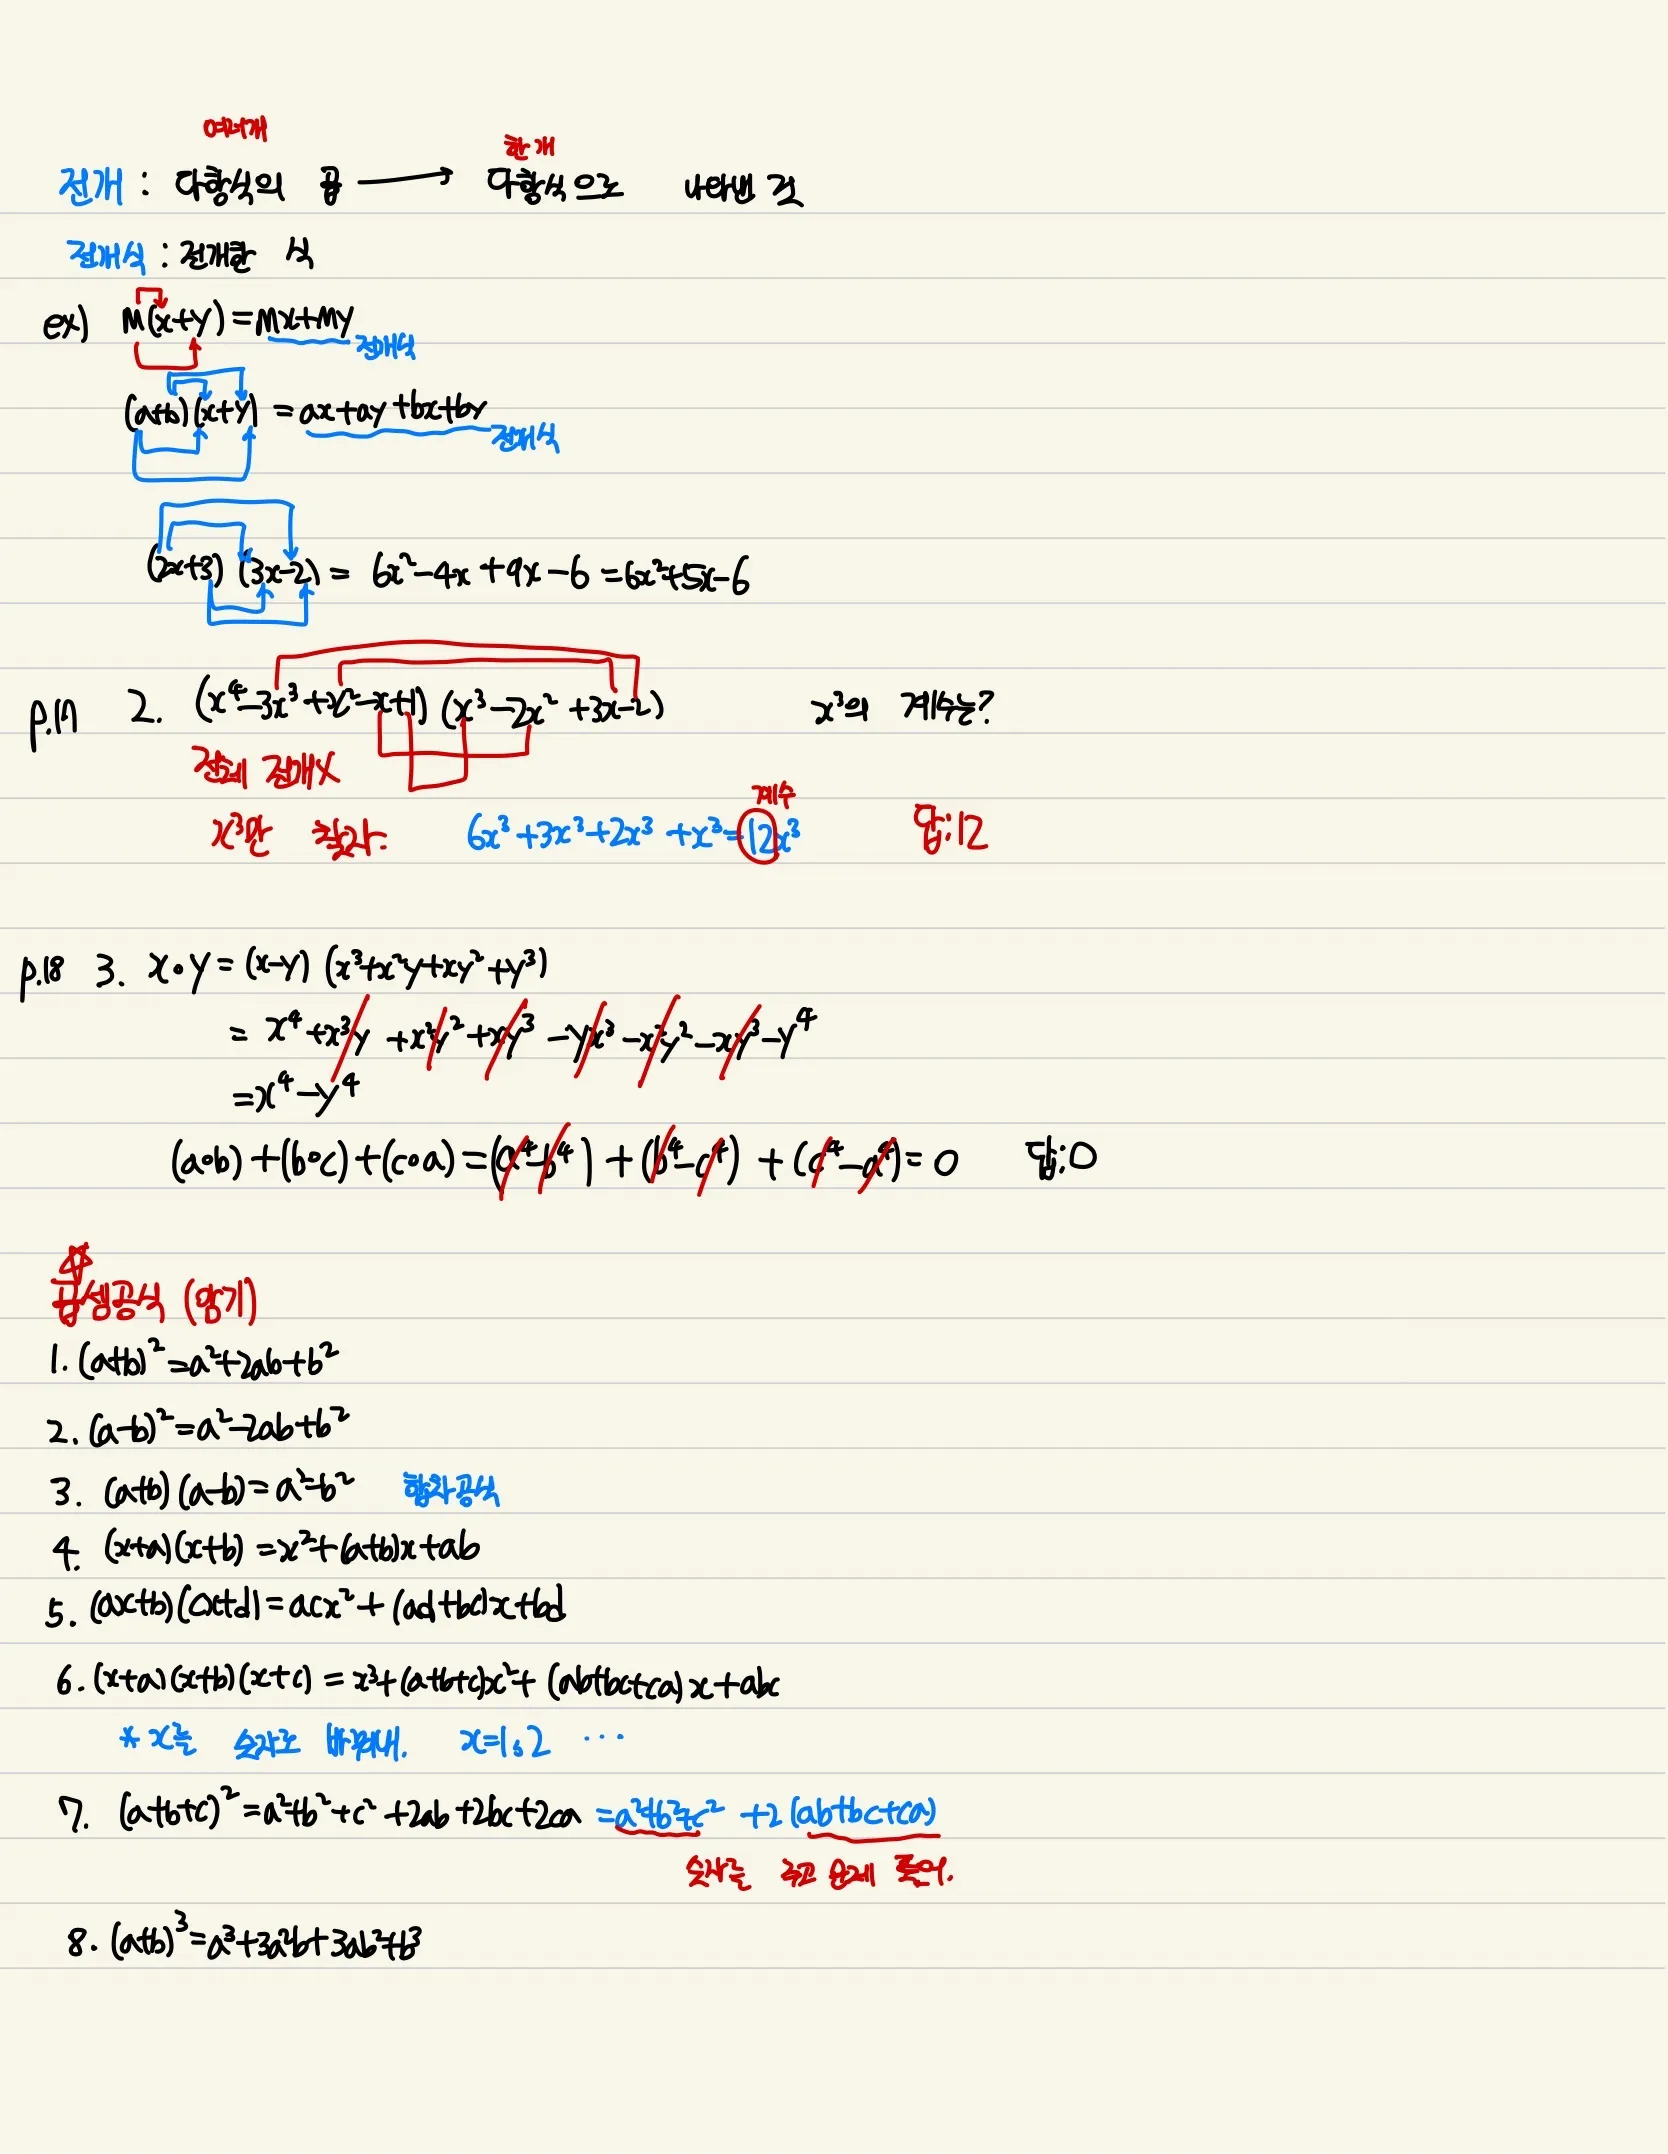 여러개
한개
전개 : 다항식의 곱 → 다항식으로 나타낸 것
전개식 : 전개한 식
ex) M(x+y)=Mx+My 전개식
(a+b)(x+y) = ax+ay+bx+by 전개식
(2x+3)(3x-2) = 6x²-4x+9x-6 = 6x²+5x-6
p.17 2. (x⁴-3x³+x²-x+1)(x³-2x²+3x-2) x³의 계수는?
전체 전개X
계수
x³만 찾자. 6x³+3x³+2x³+x³=12x³ 답:12
p.18 3. x∘y = (x-y)(x³+x²y+xy²+y³)
= x⁴+x³y+x²y²+xy³-yx³-x²y²-xy³-y⁴
=x⁴-y⁴
(a∘b)+(b∘c)+(c∘a)=(a⁴-b⁴)+(b⁴-c⁴)+(c⁴-a⁴)=0 답:0
☆
곱셈공식 (암기)
1. (a+b)²=a²+2ab+b²
2. (a-b)²=a²-2ab+b²
3. (a+b)(a-b)=a²-b² 합차공식
4. (x+a)(x+b)=x²+(a+b)x+ab
5. (ax+b)(cx+d)=acx²+(ad+bc)x+bd
6. (x+a)(x+b)(x+c) = x³+(a+b+c)x²+(ab+bc+ca)x+abc
* x는 숫자로 바꿔내. x=1,2 ⋯
7. (a+b+c)²=a²+b²+c²+2ab+2bc+2ca =a²+b²+c²+2(ab+bc+ca)
숫자는 주고 문제 풀어.
8. (a+b)³=a³+3a²b+3ab²+b³